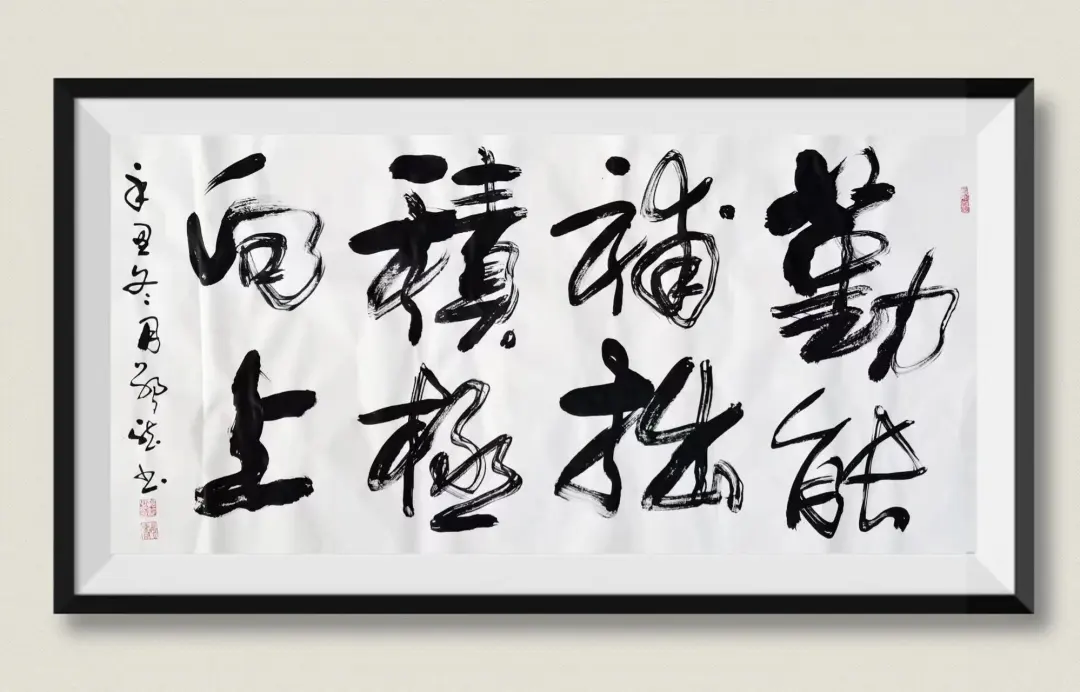 勤能
補拙
積極
向上
辛丑冬月鄭斌書